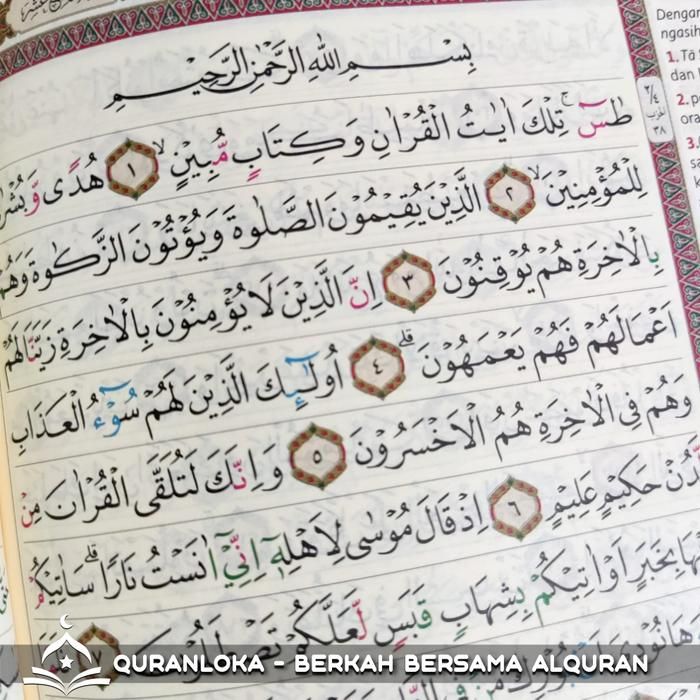 بِسْمِ اللّٰهِ الرَّحْمٰنِ الرَّحِيْمِ
طٰسۤ ۚ تِلْكَ اٰيٰتُ الْقُرْاٰنِ وَكِتَابٍ مُّبِيْنٍ ۙ ١ هُدًى وَّبُشْرٰ
لِلْمُؤْمِنِيْنَ ۙ ٢ الَّذِيْنَ يُقِيْمُوْنَ الصَّلٰوةَ وَيُؤْتُوْنَ الزَّكٰوةَ وَهُمْ
بِالْاٰخِرَةِ هُمْ يُوْقِنُوْنَ ٣ اِنَّ الَّذِيْنَ لَا يُؤْمِنُوْنَ بِالْاٰخِرَةِ زَيَّنَّا لَهُمْ
اَعْمَالَهُمْ فَهُمْ يَعْمَهُوْنَ ۗ ٤ اُولٰۤىِٕكَ الَّذِيْنَ لَهُمْ سُوْۤءُ الْعَذَابِ
وَهُمْ فِى الْاٰخِرَةِ هُمُ الْاَخْسَرُوْنَ ٥ وَاِنَّكَ لَتُلَقَّى الْقُرْاٰنَ مِنْ
لَّدُنْ حَكِيْمٍ عَلِيْمٍ ٦ اِذْ قَالَ مُوْسٰى لِاَهْلِهٖٓ اِنِّيْٓ اٰنَسْتُ نَارًاۗ سَاٰتِيْكُمْ
بِخَبَرٍ اَوْ اٰتِيْكُمْ بِشِهَابٍ قَبَسٍ لَّعَلَّكُمْ
الحزب
٣٨
Dengan
ngasih
1. Tā
dan
2.
ora
3.
QURANLOKA - BERKAH BERSAMA ALQURAN